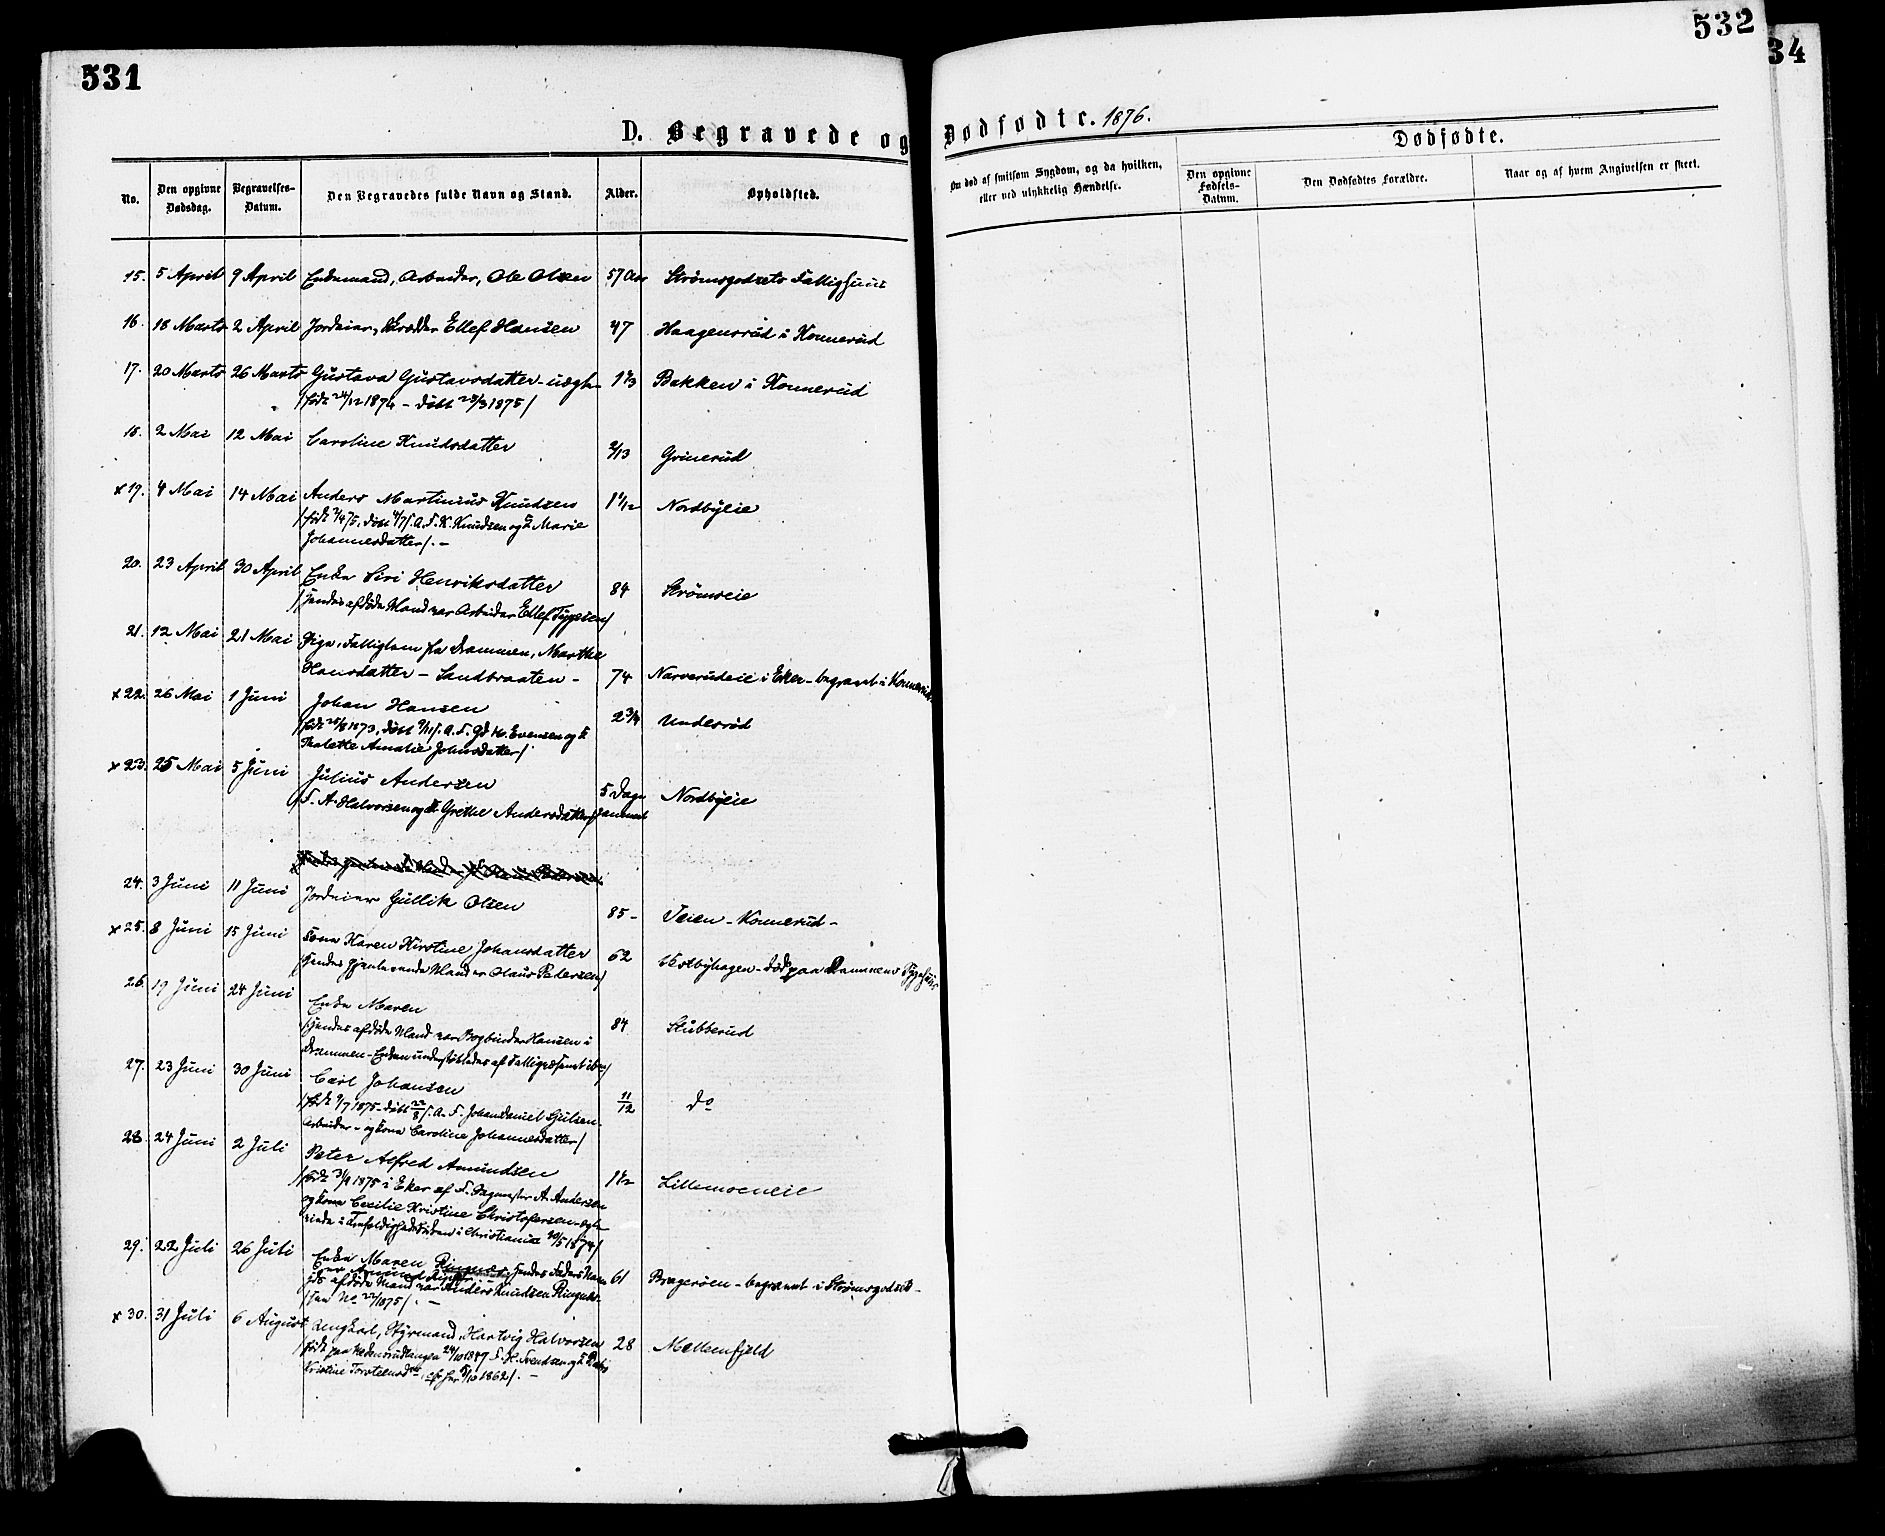 531
532
34
D. Begravede og Dødfødte. 1876.
Dødfødte.
No.
Den opgivne Dødsdag.
Begravelses-Datum.
Den Begravedes fulde Navn og Stand.
Alder.
Opholdsted.
Om død af smitsom Sygdom, og da hvilken, eller ved ulykkelig Hændelse.
Den opgivne Fødsels-Datum.
Den Dødfødtes Forældre.
Naar og af hvem Angivelsen er skeet.
15. 5 April 9 April Enkemand, Arbeider, Ole Olsen 57 Aar Strømsgodsets Fattighuus
16. 18 Marts 2 April Jordeier, Skrædder Ellef Hansen 47 Haagensrud i Konnerud
17. 20 Marts 26 Marts Gustava Gustavsdatter - uægte 1 1/3 Bakken i Konnerud
/født 24/12 1874 - døbt 28/3 1875/
18. 2 Mai 12 Mai Caroline Knudsdatter 2/13 Grinerud
x 19. 4 Mai 14 Mai Anders Martinius Knudsen 1 1/12 Nordbyeie
/født 7/4 75, døbt 4/7 s. A. F. K. Knudsen og H. Marie
Johannesdatter/. -
20. 23 April 30 April Enke Siri Henriksdatter 84 Strømseie
/hendes afdøde Mand var Arbeider Ellef Tygesen/
21. 12 Mai 21 Mai Pige, Fattiglem fra Drammen, Marthe
Hansdatter - Sandbraaten - 74 Narverudeie i Eker - begravet i Konnerud.
x 22. 26 Mai 1 Juni Johan Hansen 2 3/4 Underrud
/født 25/8 1873, døbt 9/11 s. A. F. Gd H. Evensen og H.
Thalette Amalie Johnsdatter/
x 23. 25 Mai 5 Juni Julius Andersen 5 Dage Nordbyeie
/F. A. Halvorsen og H. Grethe Andersdatter/ gammel
24. 3 Juni 11 Juni Jordeier Gullik Olsen 85 - Teien - Konnerud -
x 25. 8 Juni 15 Juni Kone Karen Kirstine Johansdatter 62 Vestbyhagen - død paa Drammens Sygehuus
/hendes gjenlevende Mand er Olaus Petersen/
26. 19 Juni 24 Juni Enke Maren 84 Stubberud
/hendes afdøde Mand var Bogbinder Hansen i
Drammen - Enken understøttedes af Fattigvæsenet
27. 23 Juni 30 Juni Carl Johansen 11/12 do
/født 9/7 1875 - døbt 22/8 s. A. F. Johan Daniel
Arbeider - og Kone Caroline Johannesdatter/
28. 24 Juni 2 Juli Peter Alfred Amundsen 1 1/2 Lillemoeneie
1875 i Eker af F. A. Andersen
og Kone Cecilie Kristine Christofersen
i Trefoldighedskirken i Christiania 1874/
29. 22 Juli 26 Juli Enke Maren, hendes Faders Navn 61 Bragerøen - begravet i Strømsgodset -
hds afdøde Mand var Anders Knudsen
No 22/1875/. -
x 30. 31 Juli 6 August Ungkarl, Styrmand, Hartvig Halvorsen 28 Mellemfjeld
/født paa 24/10 1847 F. H. Svendsen og H.
Kristine Torsteinsdr, cfr her 5/10 1862/. -